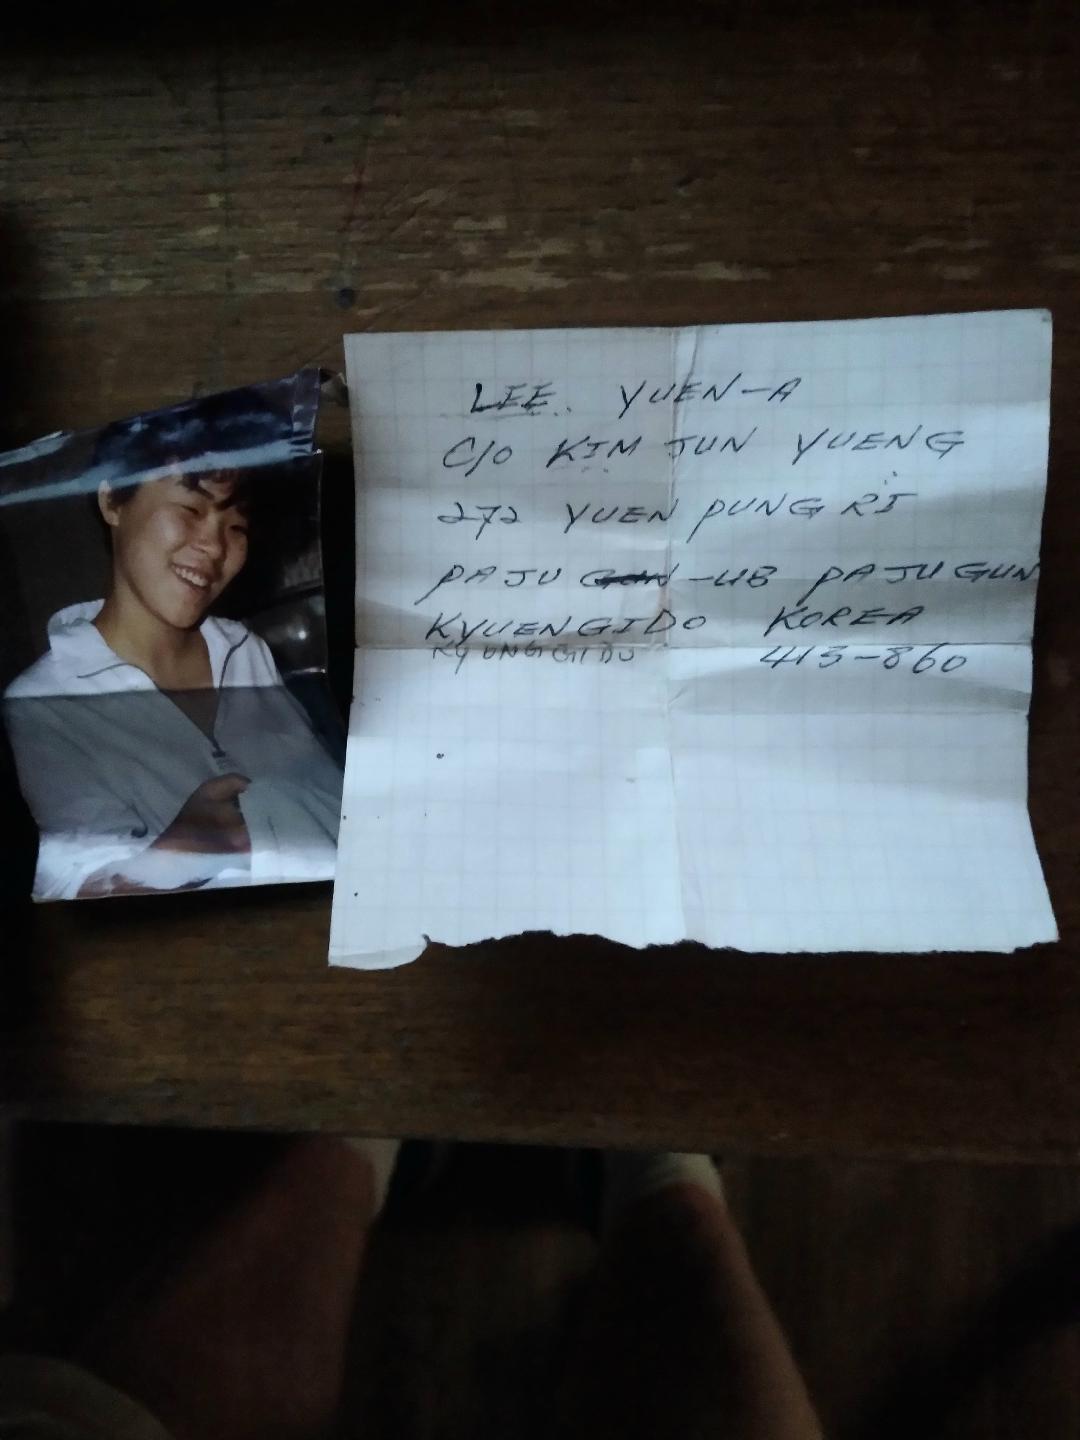 LEE YUEN-A
C/O KIM JUN YUENG
272 YUEN PUNG RI
PAJU GUN -UB PAJU GUN
KYUENGIDO KOREA
KYUNGGIDO 413-860